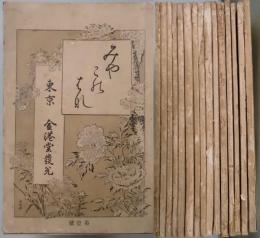 みや
この
はな
東京 金港堂發兌